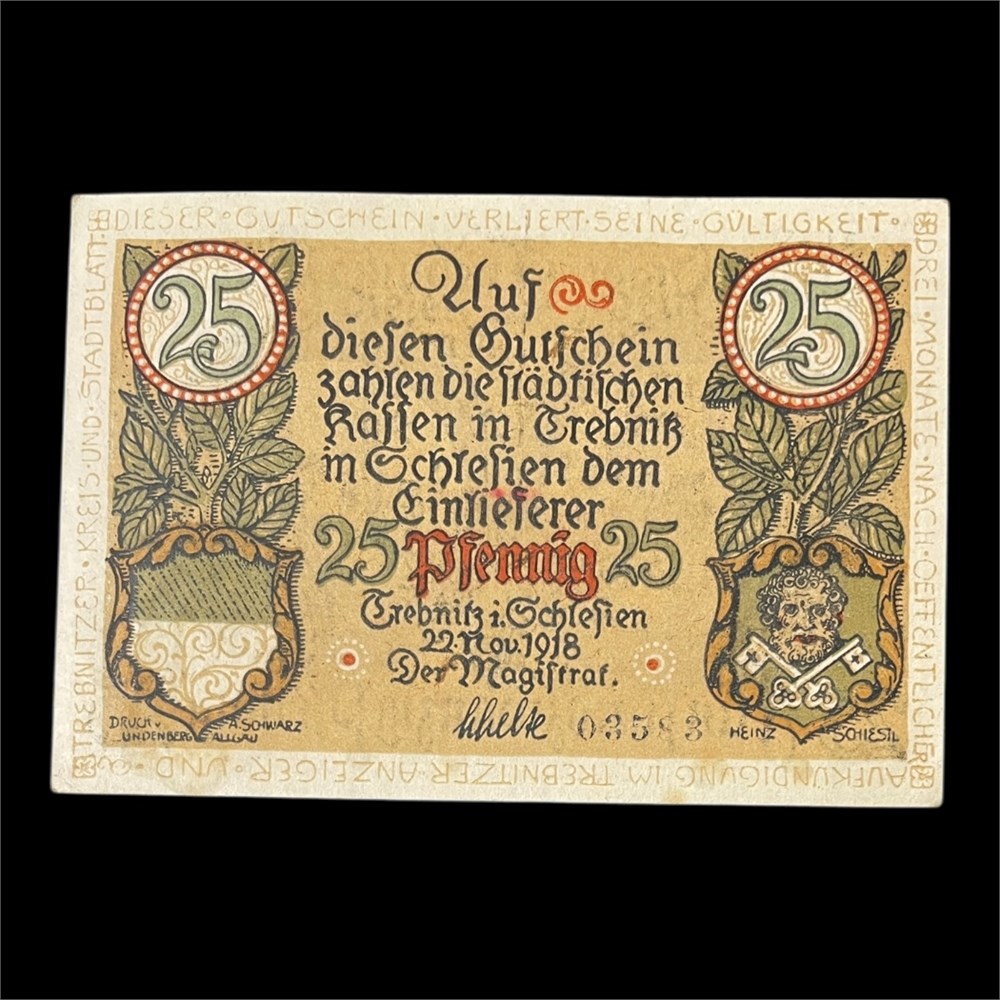 DIESER·GUTSCHEIN·VERLIERT·SEINE·GÜLTIGKEIT·
DREI·MONATE·NACH·OEFFENTLICHER
AUFKÜNDIGUNG IM TREBNITZER·ANZEIGER·UND·
TREBNITZER·KREIS·UND·STADTBLATT·
25
25
Auf
dieſen Gutſchein
zahlen die ſtädtiſchen
Kaſſen in Trebnitz
in Schleſien dem
Einlieferer
25 Pfennig 25
Trebnitz i. Schleſien
22. Nov. 1918
Der Magiſtrat.
03583
DRUCK v. A. SCHWARZ
LINDENBERG ALLGÄU
HEINZ SCHIESTL